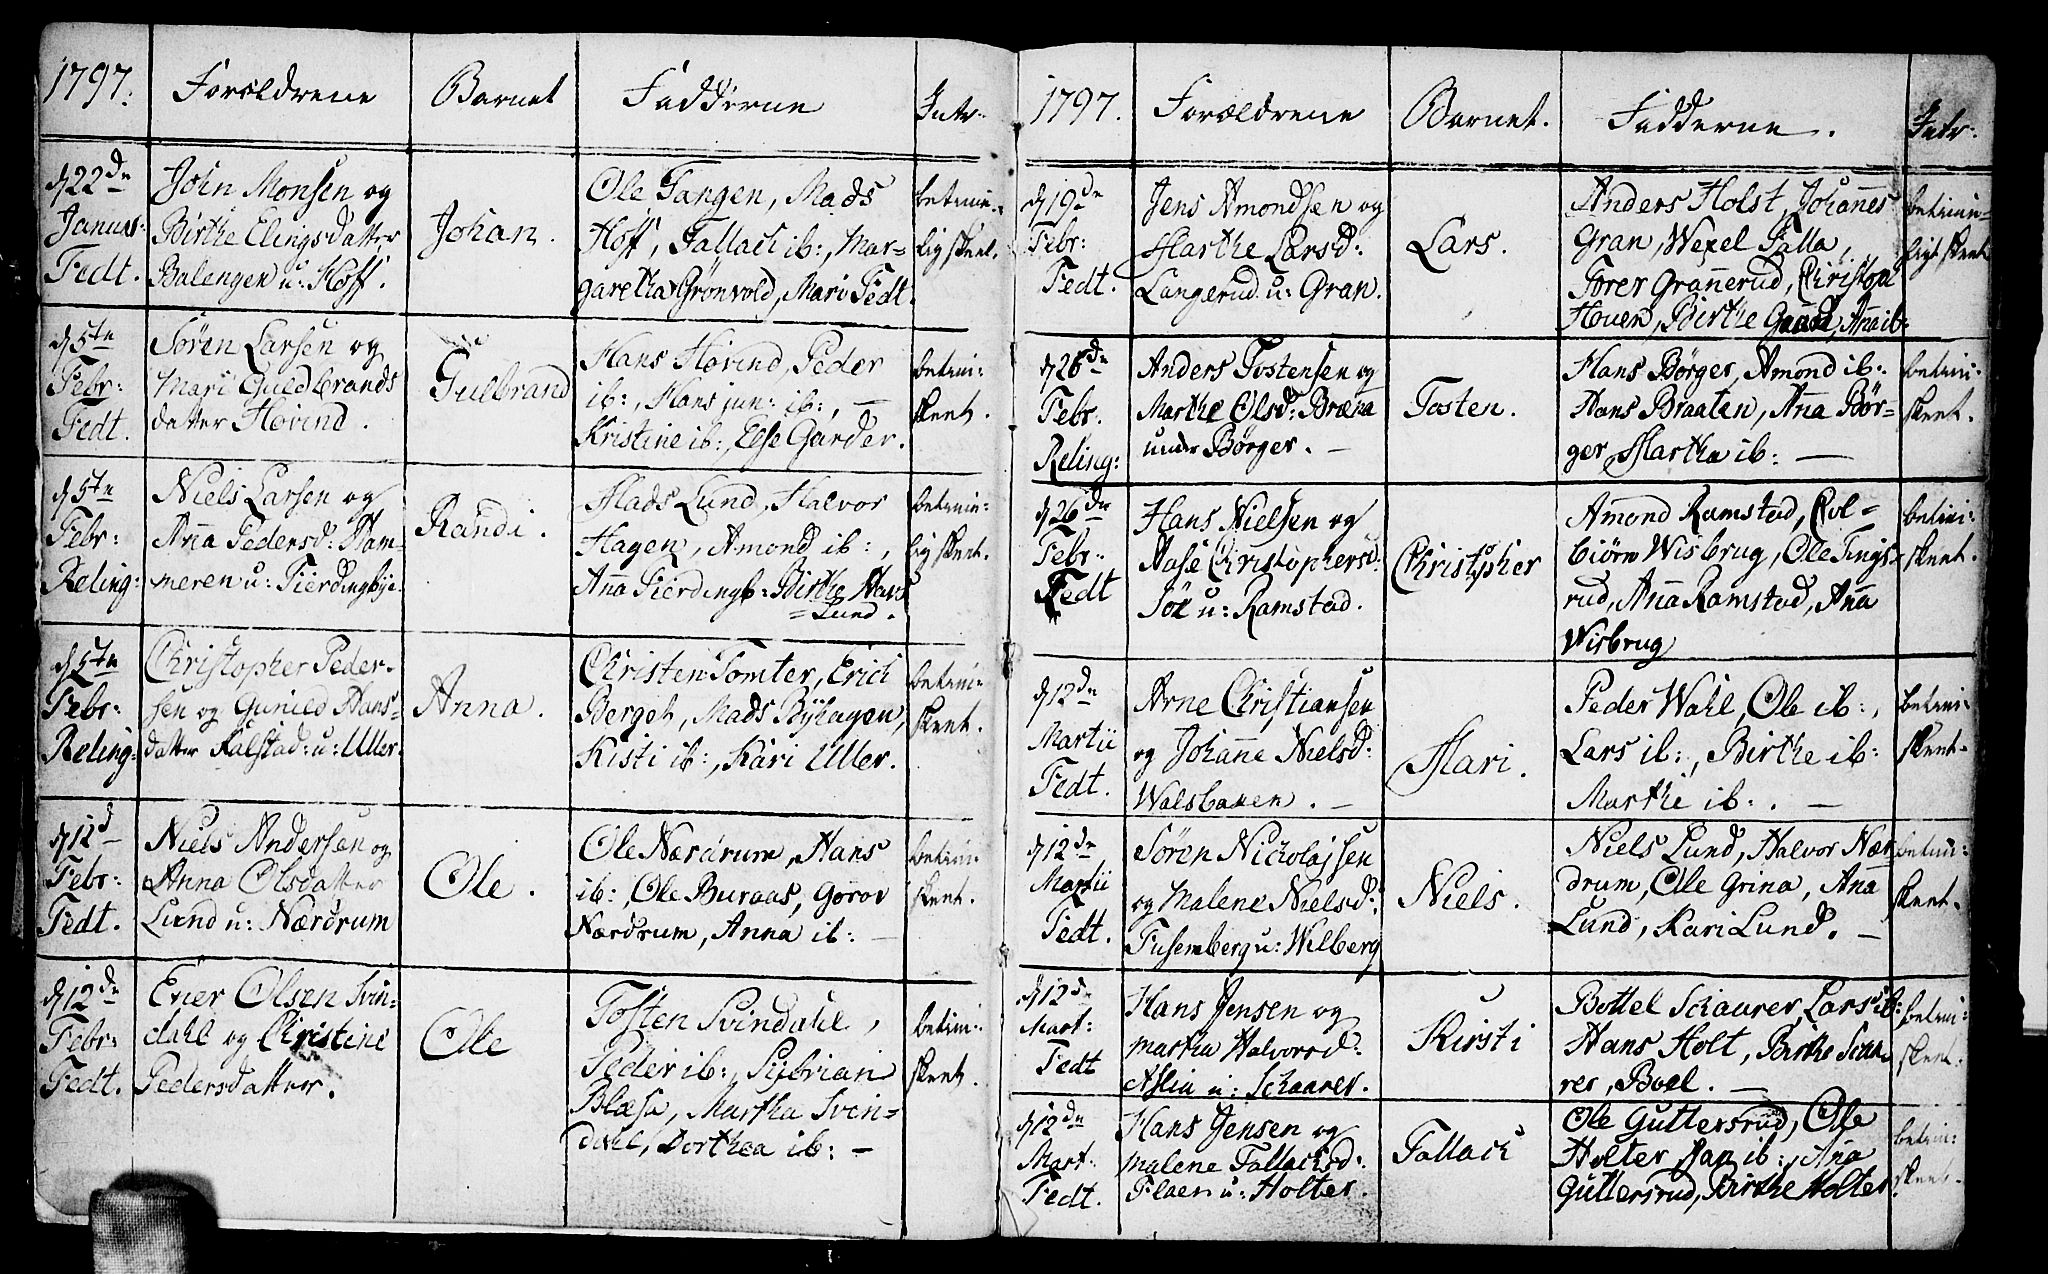 1797. Forældrene Barnet Fadderne Intr:
d 22de Januar: Fedt.
John Monsen og
Birthe Elingsdatter
Balengen u: Hoff.
Johan.
Ole Tangen, Mads
Hoff, Tallach ib:, Mar-
garetha Grönvold, Mari Fedt.
betim-
lig skeet.
d 5te
Febr:
Fedt.
Sören Larsen og
Mari Guldbrands
datter Hövind.
Gulbrand
Hans Hövind, Peder
ib:, Hans jun: ib:, —
Kristine ib:, Else Garder.
betim:
skeet.
d 5te
Febr:
Reling:
Niels Larsen og
Anna Pedersd: Ham-
meren u: Fierdingbye.
Randi.
Mads Lund, Halvor
Hagen, Amond ib:,
Anna Fierdingb: Birthe Hans
=Lund.
betim-
lig skeet.
d 5te
Febr:
Reling:
Christopher Peder-
sen og Gunild Hans-
datter Kalstad: u: Uller.
Anna.
Christen Tomter, Erich
Berget, Mads Byhagen,
Kisti ib:, Kari Uller.
betim:
skeet.
d 12d
Febr:
Fedt.
Niels Andersen og
Anna Olsdatter
Lund u: Nærdrum
Ole.
Ole Nærdrum, Hans
ib:, Ole Buraas, Goroe
Nærdrum, Anna ib: —
betim:
skeet.
d 12de
Febr:
Fedt.
Evier Olsen Svin-
dahl og Christine
Pedersdatter.
Ole
Tosten Svindahl,
Peder ib:, Sybrian
Blæsa, Martha Svin-
dahl, Dorthea ib: —
betim:
skeet.
1797. Forældrene Barnet. Fadderne. Intr:
d 19de
Febr:
Fedt.
Jens Amondsen og
Marthe Larsd:
Langerud u: Gran.
Lars.
Anders Holst, Johannes
Gran, Wexel Falla,
Torer Grannerud, Christopf
Houen, Birthe Gaasa, Anna ib:
betim-
ligt skeet
d 26de
Febr.
Reling:
Anders Tostensen og
Marthe Olsd: Bræna
under Börger. —
Tosten.
Hans Börger, Amond ib:
Hans Braaten, Anna Bör-
ger Martha ib: —
betim:
skeet.
d 26de
Febr:
Fedt
Hans Nielsen og
Aase Christophersd:
Iöe u: Ramstad.
Christopher
Amond Ramstad, Col-
biörn Wisbrug, Ole Tings-
rud, Anna Ramstad, Anna
Wisbrug
betim:
skeet.
d 12de
Martii
Fedt.
Arne Christiansen
og Johanne Nielsd:
Walsbaken. —
Mari.
Peder Wahl, Ole ib:,
Lars ib:, Birthe ib:
Marthe ib:. —
betim:
skeet.
d 12de
Martii
Fedt.
Sören Nickolajsen
og Malene Nielsd:
Fusemberg u: Wilberg
Niels.
Niels Lund, Halvor Nær
drum, Ole Grina, Anna
Lund, Kari Lund. —
betim:
skeet.
d 12de
Mart:
Fedt
Hans Jensen og
Martha Halvorsd:
Aslia u: Schaarer.
Kirsti
Bottel Schaurer, Lars ib:
Hans Holt, Birthe Scha
rer, Boel. —
betim:
skeet.
d 12de
Mart:
Fedt.
Hans Jensen og
Malene Tallachsd:
Flaen u: Holter.
Tallach
Ole Guttersrud, Ole
Holter, Jan ib:, Anna
Guttersrud, Birthe Holter
betim:
skeet.